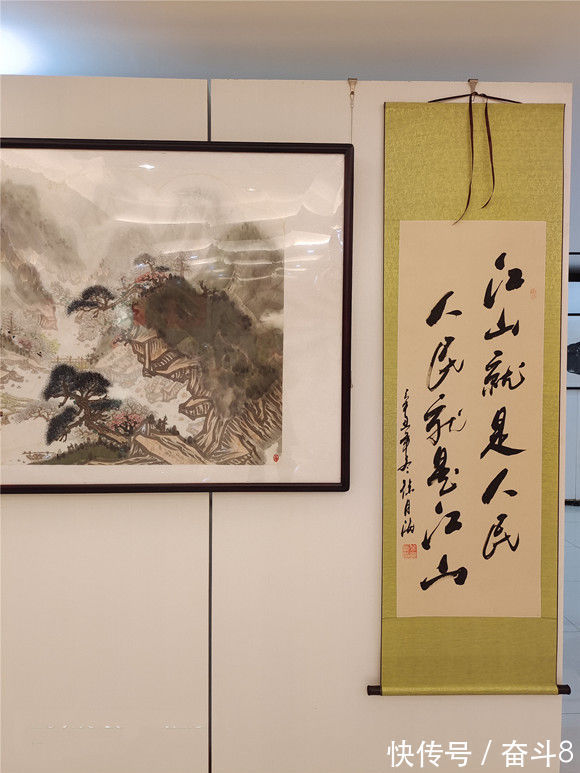 江山就是人民
人民就是江山
辛丑年冬徐月
快传号 / 奋斗8